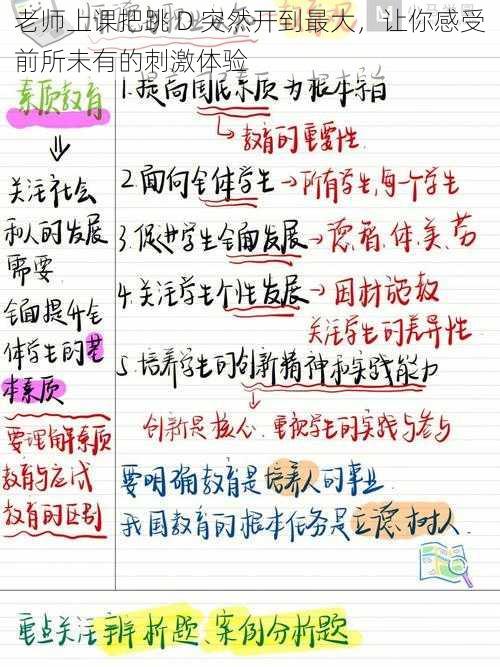 老师上课把跳 D 突然开到最大，让你感受
前所未有的刺激体验
素质教育
关注社会
和人的发展
需要
全面提升全
体学生的基
本素质
要理解素质
教育与应试
教育的区别
1.提高国民素质为根本宗旨
教育的重要性
2.面向全体学生→所有学生,每一个学生
3.促进学生全面发展→德.智.体.美.劳
4.关注学生个性发展→因材施教
关注学生的差异性
5.培养学生的创新精神和实践能力
创新是核心.重视学生的实践与参与
要明确教育是培养人的事业
我国教育的根本任务是立德.树人.
重点关注辨析题、案例分析题